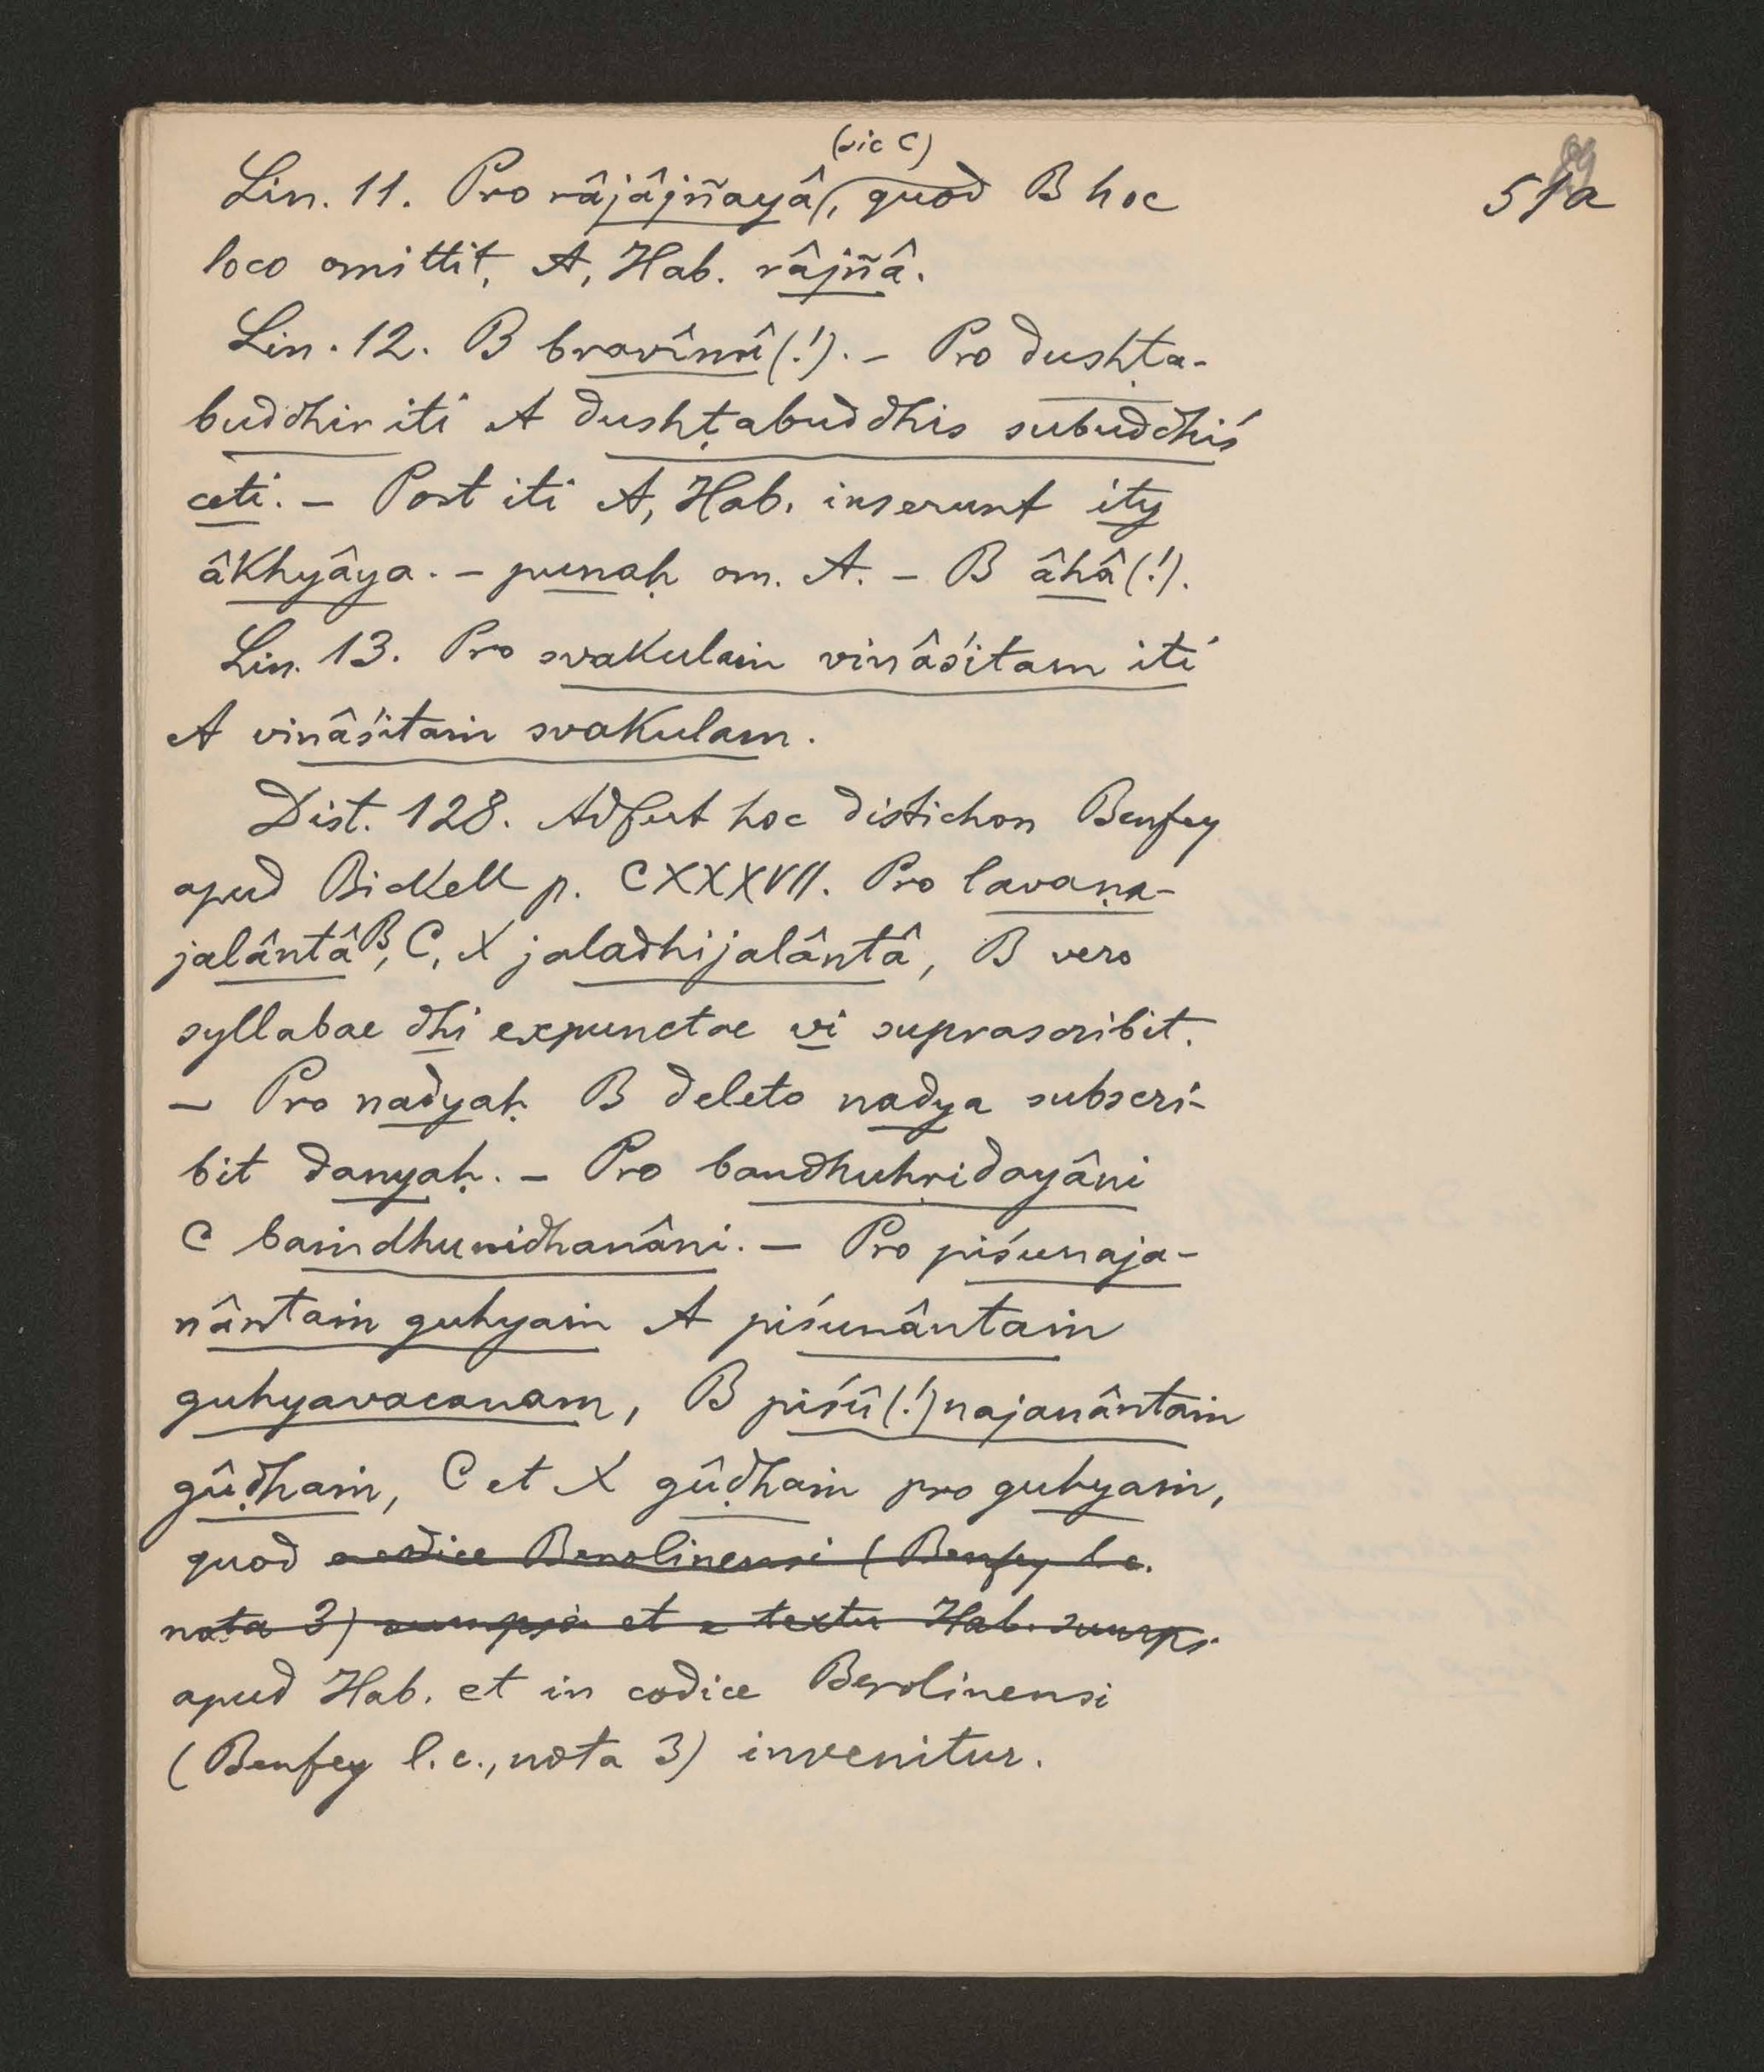 (sic C)
Lin. 11. Pro râjâjñayâ, quod B hoc
51a
loco omittit, A, Hab. râjñâ.
Lin. 12. B bravîmî(!). – Pro dushṭa-
buddhir iti A dushṭabuddhis subuddhiś
ceti. – Post iti A, Hab. inserunt ity
âkhyâya. – punaḥ om. A. – B âhâ(!).
Lin. 13. Pro svakulaṁ vinâśitam iti
A vinâśitaṁ svakulam.
Dist. 128. Adfert hoc distichon Benfey
apud Bickell p. CXXXVII. Pro lavaṇa-
jalântâ B, C, X jaladhijalântâ, B vero
syllabae dhi expunctae vi suprascribit.
– Pro nadyaḥ B deleto nadya subscri-
bit danyaḥ. – Pro bandhuhṛidayâni
C baṁdhunidhanâni. – Pro piśunaja-
nântaṁ guhyaṁ A piśunântaṁ
guhyavacanam, B piśû(!)najanântaṁ
gûḍhaṁ, C et X gûḍhaṁ pro guhyaṁ,
quod e codice Berolinensi (Benfey l.c.
nota 3) sumpsi et e textu Hab. sumpsi
apud Hab. et in codice Berolinensi
(Benfey l.c., nota 3) invenitur.